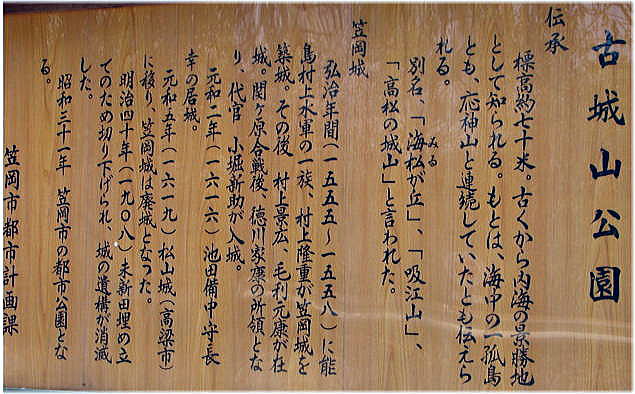 古城山公園
伝承
標高約七十米。古くから内海の景勝地
として知られる。もとは、海中の一孤島
とも、応神山と連繞していたとも伝えら
れる。
別名、「海松が丘」、「吸江山」、
みる
「高松の城山」と言われた。
笠岡城
弘治年間(一五五五〜一五五八)に能
島村上水軍の一族、村上隆重が笠岡城を
築城。その後 村上景広 毛利元康が在
城。関ヶ原合戦後、徳川家康の所領とな
り、代官 小堀新助が入城。
元和二年(一六一六)池田備中守長
幸の居城。
元和五年(一六一九)松山城(高梁市)
に移り、笠岡城は廃城となった。
明治四十年(一九〇八)末新田埋め立
てのため切り下げられ、城の遺構が消滅
した。
昭和三十一年 笠岡市の都市公園とな
る。
笠岡市都市計画課